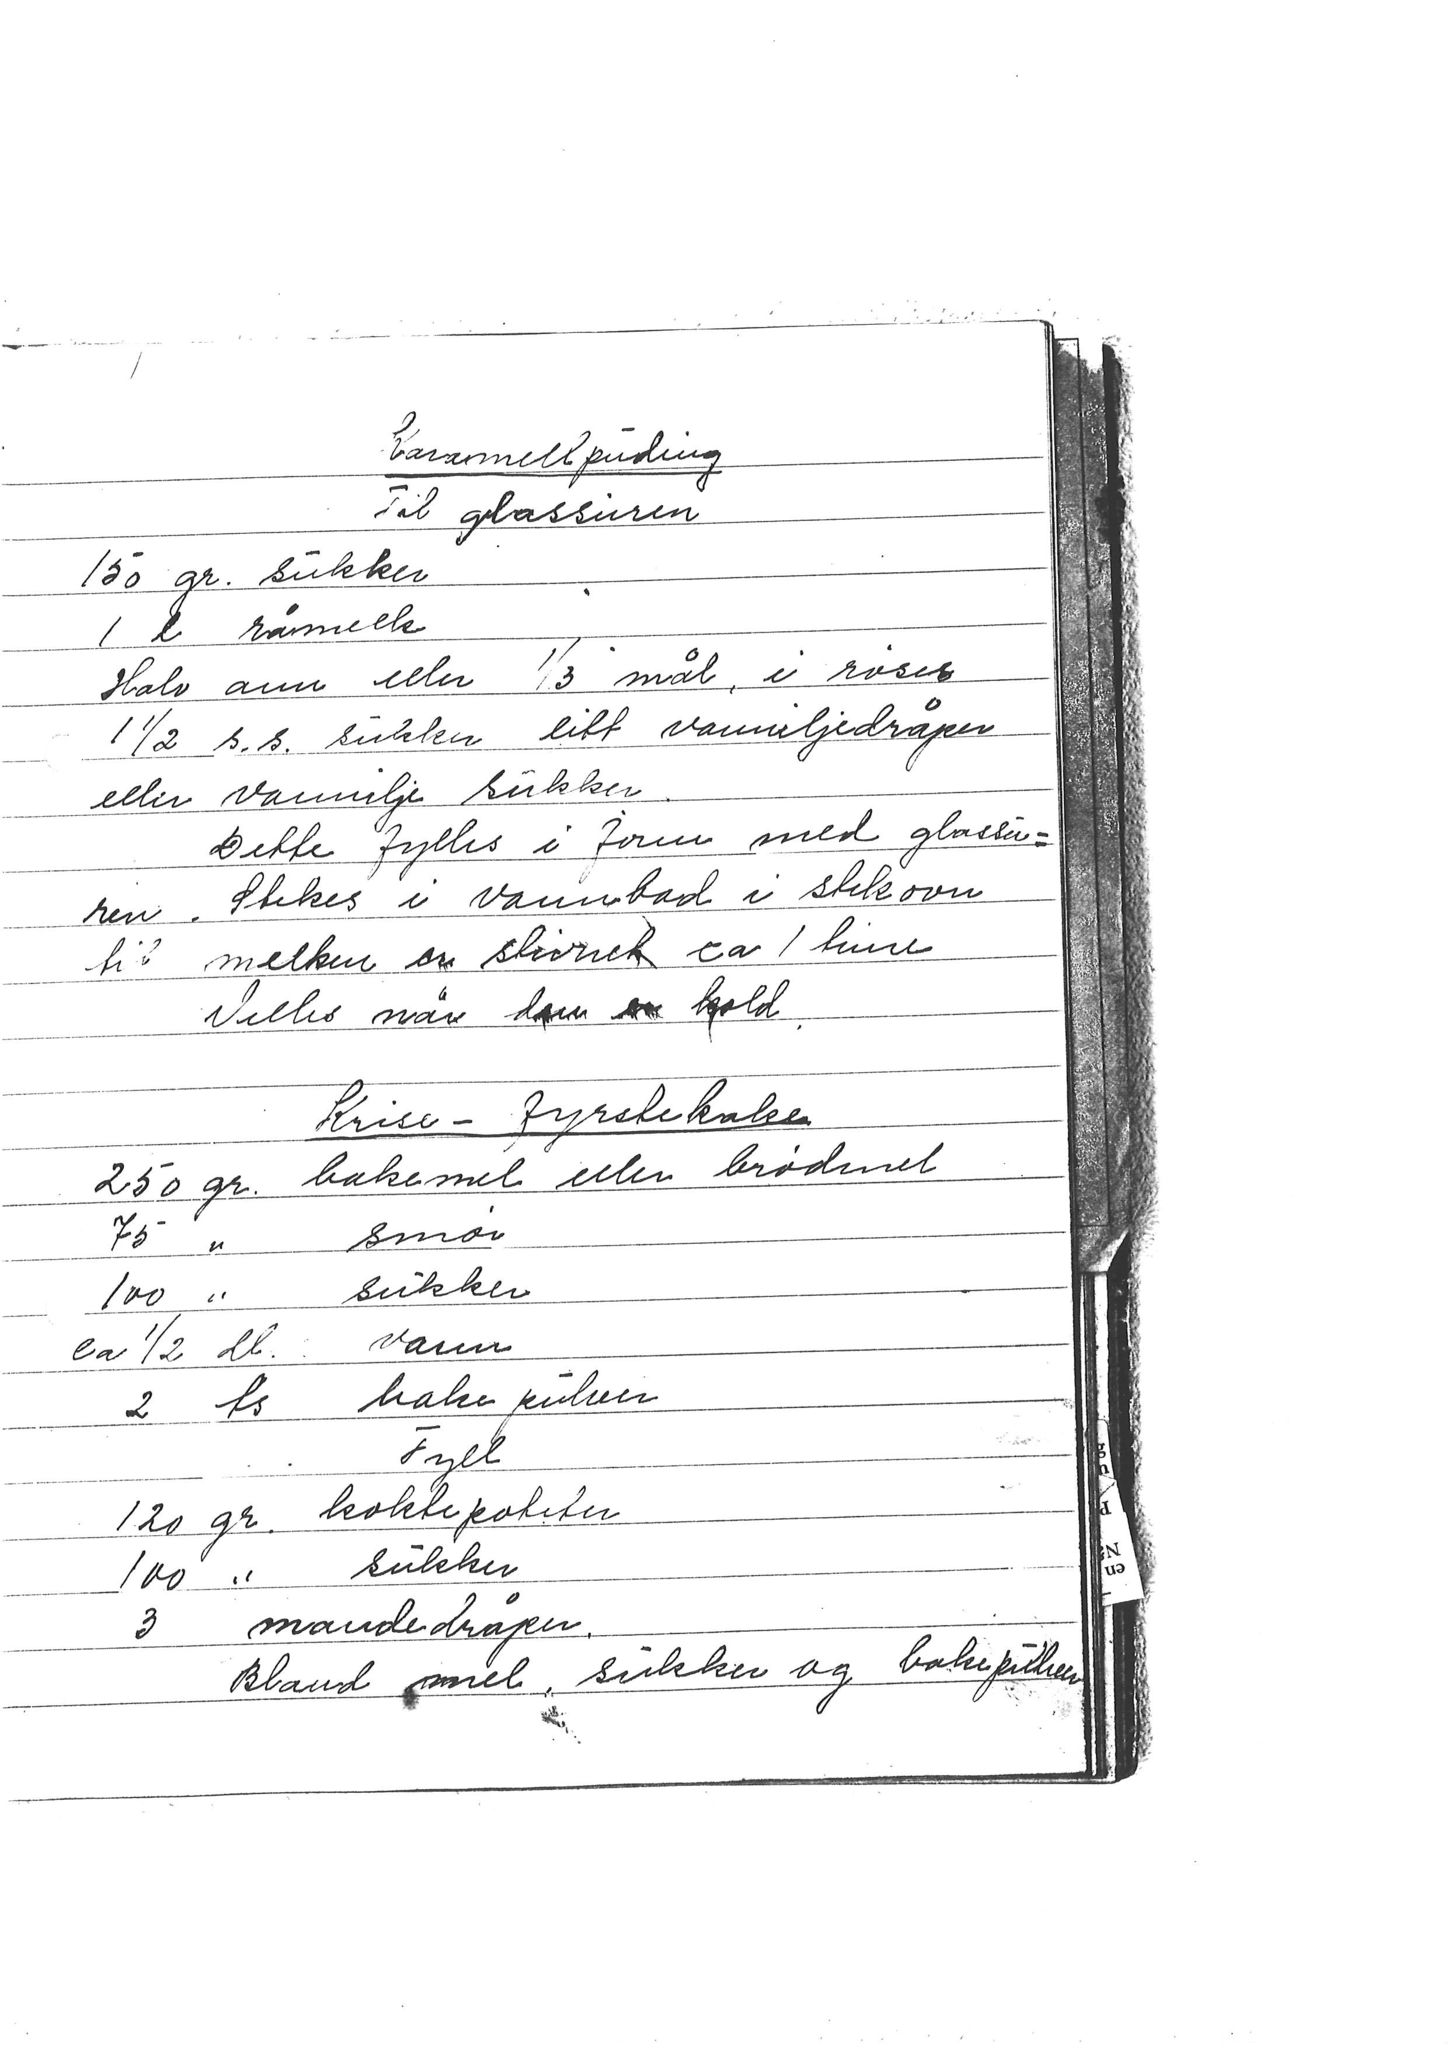 Karamellpuding
Til glassuren
150 gr. sukker
1 l råmelk
Halv ann eller 1/3 mål, i
1 1/2 s.s. sukker litt vanniljedråper
eller vannilje sukker.
Dette fylles i form med glassu=
ren. Stekes i vannbad i stekovn
til melken er stivnet ca 1 time
Velles når den er kold.
Krise - fyrstekake
250 gr. bakemel eller brødmel
75 " smør
100 " sukker
ca 1/2 dl. vann
2 ts bakepulver
Fyll
120 gr. koktepoteter
100 " sukker
3 mandedråper.
Bland mel, sukker og bakepulver